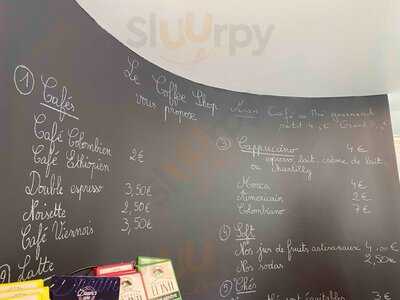 Sluurpy
Le Coffee Shop
vous propose
① Cafés
Café Colombien
Café Ethiopien 2€
Double espresso 3,50€
Noisette 2,50€
Café Viennois 3,50€
Latte
③ Cappuccino 4€
espresso, lait, crème de lait
ou chantilly
Mocca 4€
Americain 2€
Colombiano 7€
④ Soft
Nos jus de fruits artisanaux 4,00€
Nos sodas 2,50€
⑤ Thés